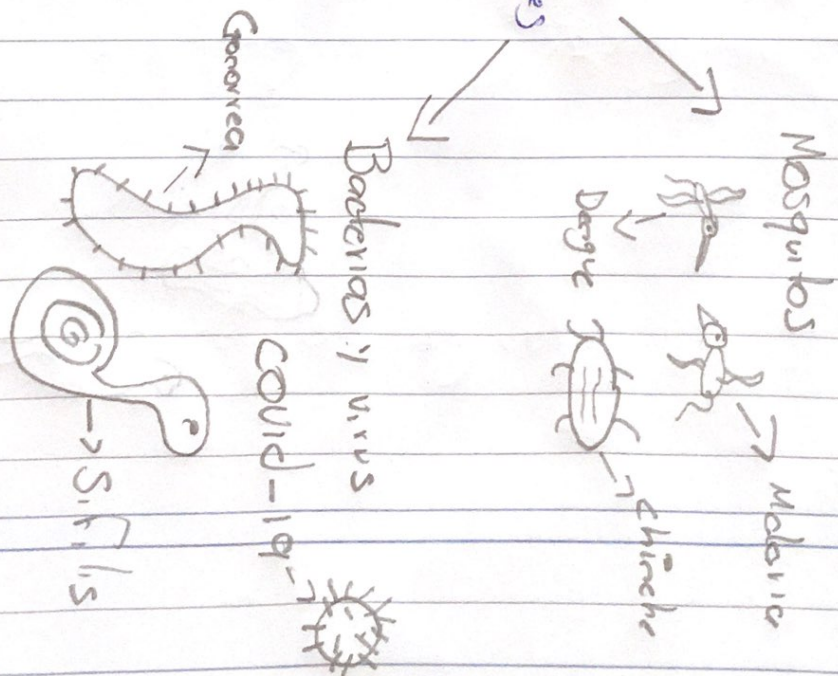 es
Mosquitos
Malaria
Dengue
Chinche
Bacterias y virus
COVID-19
Gonorrea
Sifilis